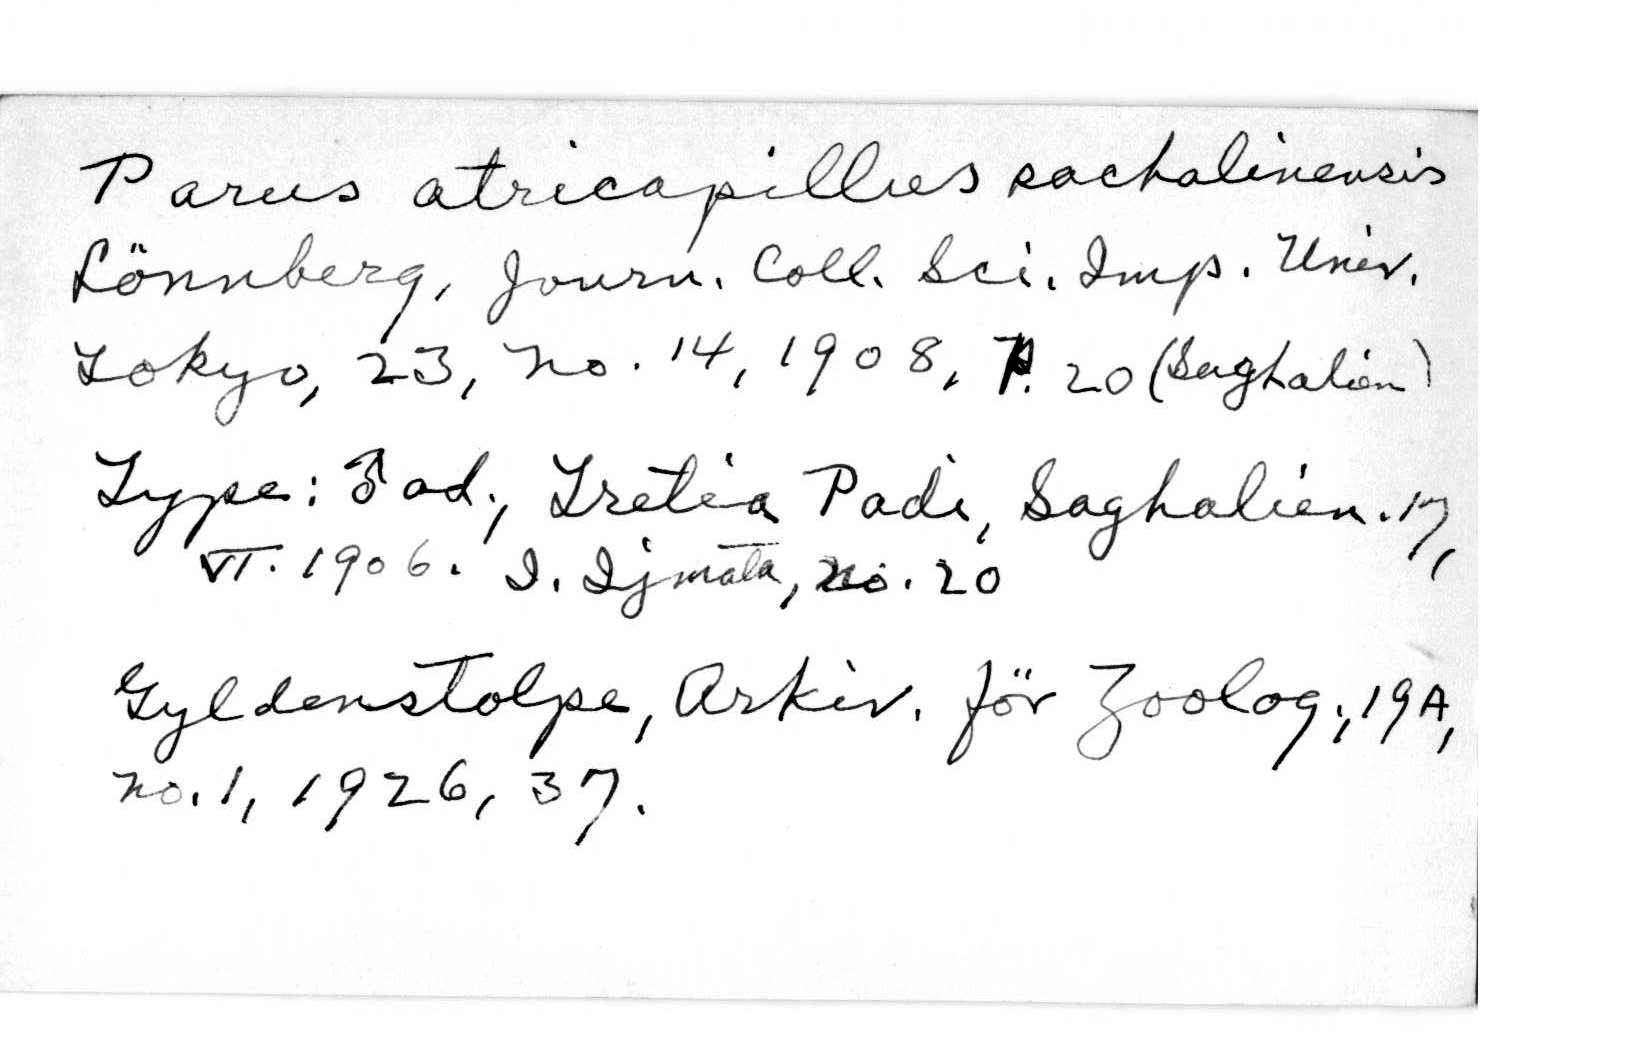 Parus atricapillus sachalinensis
Lönnberg, Journ. Coll. Sci. Imp. Univ.
Tokyo, 23, no. 14, 1908, p. 20 (Saghalien)
Type: ♂ ad., Tretia Padi, Saghalien. 17,
VI. 1906. I. Ijmata, no. 20
Gyldenstolpe, Arkiv. för Zoolog., 19A,
no. 1, 1926, 37.